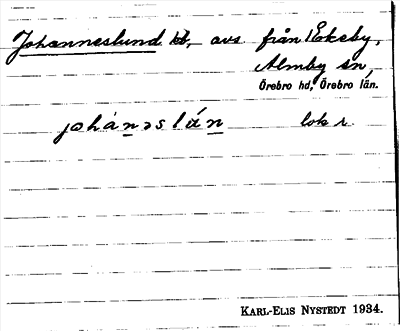 Johanneslund hd, avs. från Ekeby,
Almby sn,
Örebro hd, Örebro län.
johánəslún lok r.
KARL-ELIS NYSTEDT 1934.